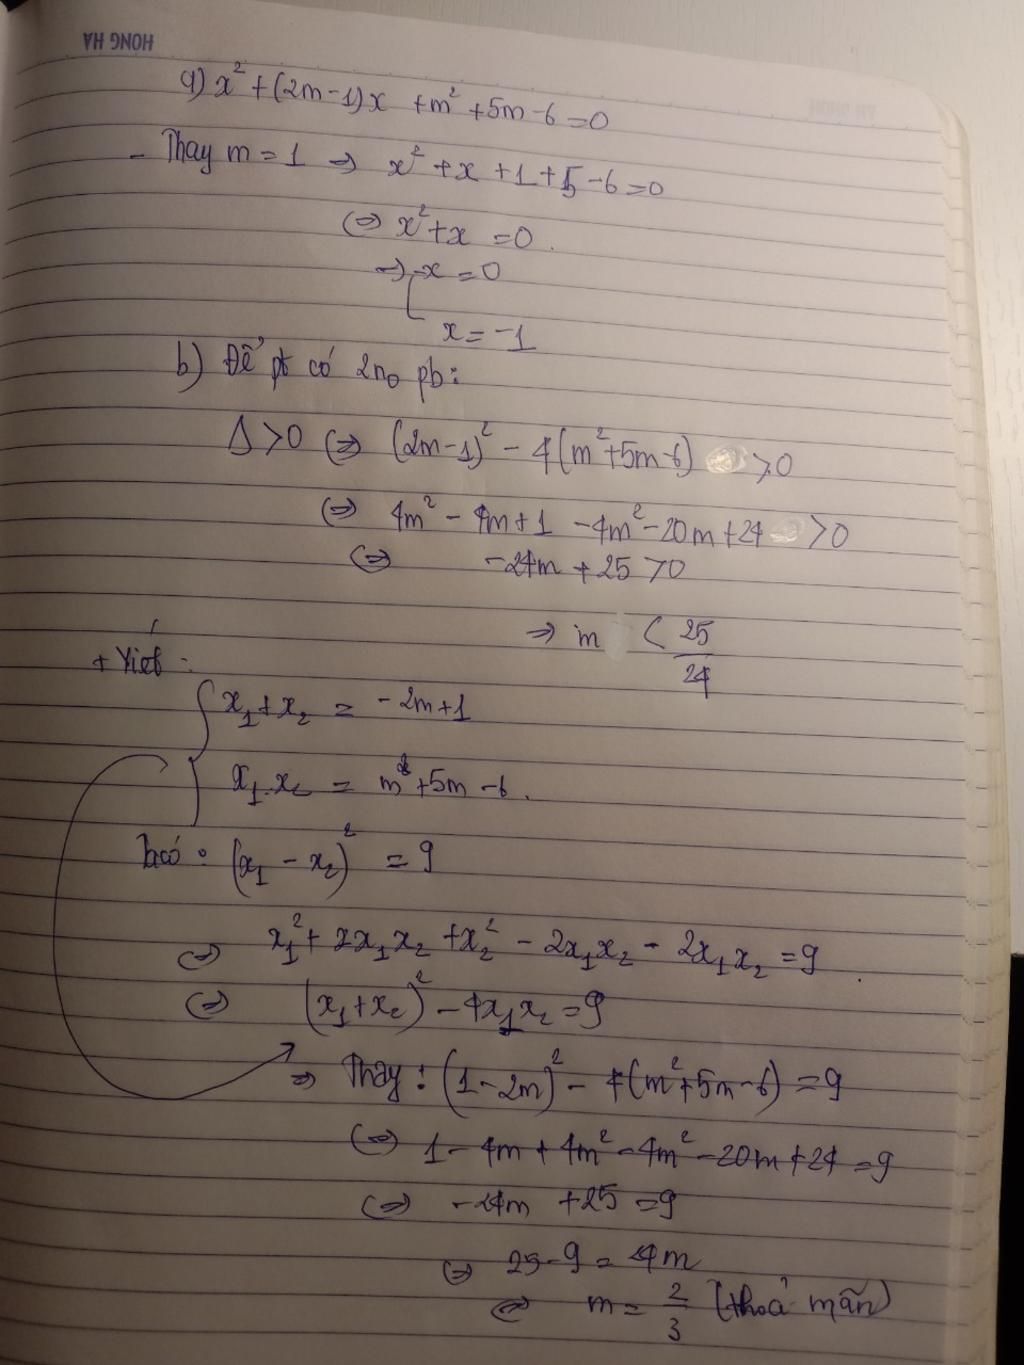 HONG HA
a) x² + (2m-1)x + m² + 5m - 6 = 0
- Thay m = 1 ⇒ x² + x + 1 + 5 - 6 = 0
⇔ x² + x = 0.
⇒ x = 0
x = -1
b) Để pt có 2n₀ pb:
Δ > 0 ⇔ (2m-1)² - 4(m² + 5m - 6) > 0
⇔ 4m² - 4m + 1 - 4m² - 20m + 24 > 0
⇔ -24m + 25 > 0
⇒ m < 25/24
+ Viét:
x₁ + x₂ = -2m + 1
x₁.x₂ = m² + 5m - 6.
Ta có: (x₁ - x₂)² = 9
⇔ x₁² + 2x₁x₂ + x₂² - 2x₁x₂ - 2x₁x₂ = 9
⇔ (x₁ + x₂)² - 4x₁x₂ = 9
⇒ Thay: (1 - 2m)² - 4(m² + 5m - 6) = 9
⇔ 1 - 4m + 4m² - 4m² - 20m + 24 = 9
⇔ -24m + 25 = 9
⇔ 25 - 9 = 24m
⇔ m = 2/3 (thoả mãn)